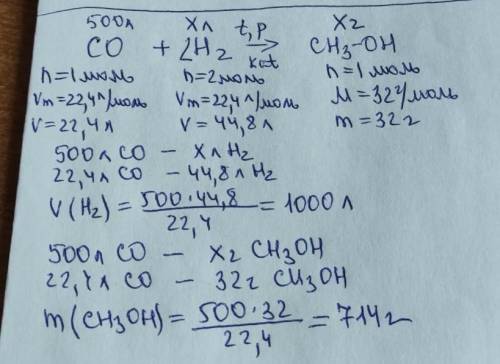 500л Xл t,p Xг
CO + 2H2 → CH3-OH
kat
n=1моль n=2моль n=1моль
Vm=22,4л/моль Vm=22,4л/моль M=32г/моль
V=22,4л V=44,8л m=32г
500л CO — Xл H2
22,4л CO — 44,8л H2
V(H2) = 500·44,8 / 22,4 = 1000л
500л CO — Xг CH3OH
22,4л CO — 32г CH3OH
m(CH3OH) = 500·32 / 22,4 = 714г